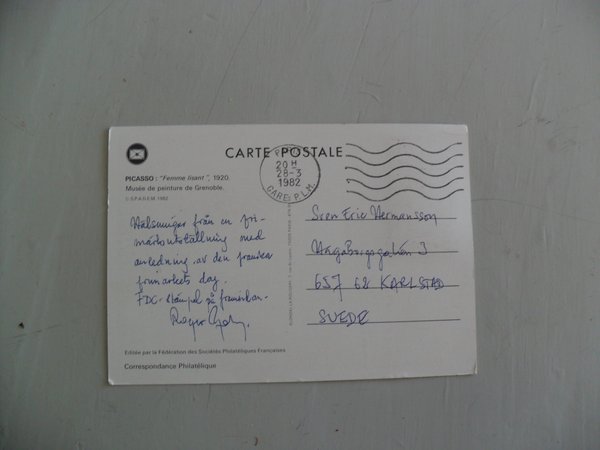 CARTE POSTALE
PICASSO : "Femme lisant", 1920.
Musée de peinture de Grenoble.
© S.P.A.D.E.M. 1982
20 H
28-3
1982
GARE P.L.M.
Hälsningar från en fri-
märksutställning med
anledning av den franska
frimärkets dag.
FDC-stämpel på framsidan.
Roger
Sven Eric Hermansson
657 62 KARLSTAD
SUEDE
Editée par la Fédération des Sociétés Philatéliques Françaises
Correspondance Philatélique